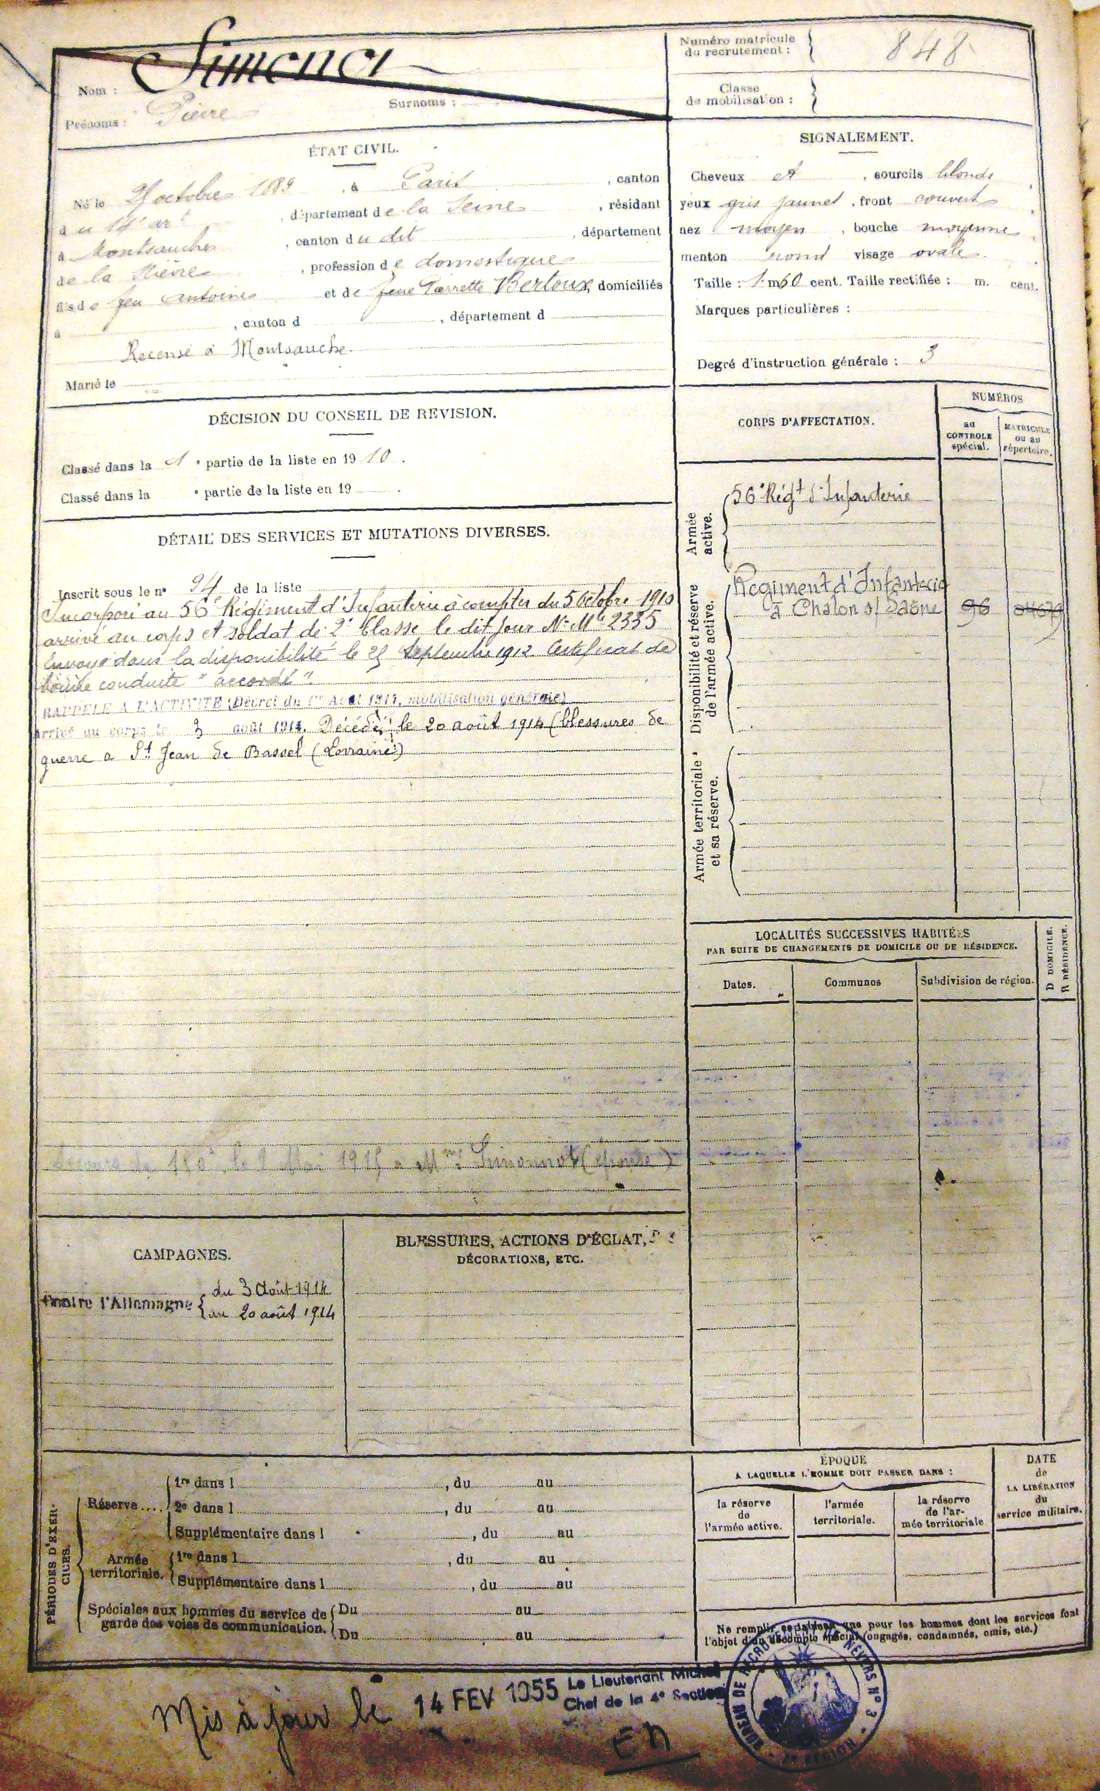 Nom :
Prénoms : Pierre
Surnoms :
Numéro matricule du recrutement : 848
Classe de mobilisation :
ÉTAT CIVIL.
Né le octobre 1889, à Paris, canton
du 14e arrt, département de la Seine, résidant
à Montsauche, canton du dit, département
de la Nièvre, profession de domestique
fils de feu Antoine et de feue Pierrette Bertoux, domiciliés
à , canton d , département d
Recensé à Montsauche.
Marié le
SIGNALEMENT.
Cheveux et, sourcils blonds
yeux gris jaunet, front couvert
nez moyen, bouche moyenne
menton rond visage ovale
Taille : 1 m 60 cent. Taille rectifiée : m. cent.
Marques particulières :
Degré d'instruction générale : 3
DÉCISION DU CONSEIL DE REVISION.
Classé dans la 1e partie de la liste en 1910.
Classé dans la e partie de la liste en 19 .
DÉTAIL DES SERVICES ET MUTATIONS DIVERSES.
Inscrit sous le n° 94 de la liste
Incorporé au 56e Régiment d'Infanterie à compter du 5 octobre 1910
arrivé au corps et soldat de 2e Classe le dit jour No Mle 2335
Envoyé dans la disponibilité le 25 Septembre 1912 Certificat de
bonne conduite "accordé"
RAPPELÉ A L'ACTIVITÉ (Décret du 1er Août 1914, mobilisation générale)
arrivé au corps le 3 août 1914. Décédé le 20 août 1914 (blessures de
guerre à St Jean de Bassel (Lorraine)
Secours de 150f le 1 Mai 1915 a Mme Simonnot (épouse)
CORPS D'AFFECTATION.
NUMÉROS
au CONTROLE spécial.
MATRICULE ou au répertoire.
Armée active.
56e Régt d'Infanterie
Disponibilité et réserve de l'armée active.
Régiment d'Infanterie
à Chalon s/ Saône 96
Armée territoriale et sa réserve.
LOCALITÉS SUCCESSIVES HABITÉES
PAR SUITE DE CHANGEMENTS DE DOMICILE OU DE RÉSIDENCE.
Dates.
Communes
Subdivision de région.
D DOMICILE.
R RÉSIDENCE.
CAMPAGNES.
Contre l'Allemagne { du 3 Août 1914
au 20 août 1914
BLESSURES, ACTIONS D'ÉCLAT,
DÉCORATIONS, ETC.
PÉRIODES D'EXERCICES.
Réserve.... 1re dans l , du au
2e dans l , du au
Supplémentaire dans l , du au
Armée territoriale. 1re dans l , du au
Supplémentaire dans l , du au
Spéciales aux hommes du service de garde des voies de communication. Du au
Du au
ÉPOQUE
A LAQUELLE L'HOMME DOIT PASSER DANS :
la réserve de l'armée active.
l'armée territoriale.
la réserve de l'armée territoriale
DATE de LA LIBÉRATION du service militaire.
Ne remplir ce tableau que pour les hommes dont les services font
l'objet d'un décompte spécial (engagés, condamnés, omis, etc.)
Mis à jour le 14 FEV 1955
Le Lieutenant Michel
Chef de la 4e Section
BUREAU DE RECRUTEMENT DE NEVERS N° 3